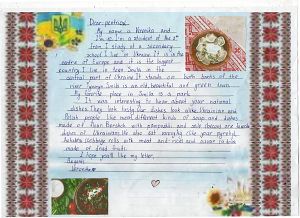 Dear penfriend,
My name is Veronika and
I'm 10. I'm a student of the 5th
form. I study at a secondary
school. I live in Ukraine. It is in the
centre of Europe and it is the biggest
country. I live in town Smila in the
central part of Ukraine. It stands on both banks of the
river Smila is an old, beautiful and green town.
My favorite place in Smila is a park.
It was interesting to hear about your national
dishes. They look tasty. Our dishes look alike. Ukrainian and
Polish people like most different kinds of soup and dishes
made of flour. Borshch with pampushki and salo (bacon) are
dishes of Ukrainian. We also eat varenyky (like your pyrohy),
holubtsi (cabbage rolls with meat and rice) and uzvar (a drink
made of dried fruit).
I hope you'll like my letter.